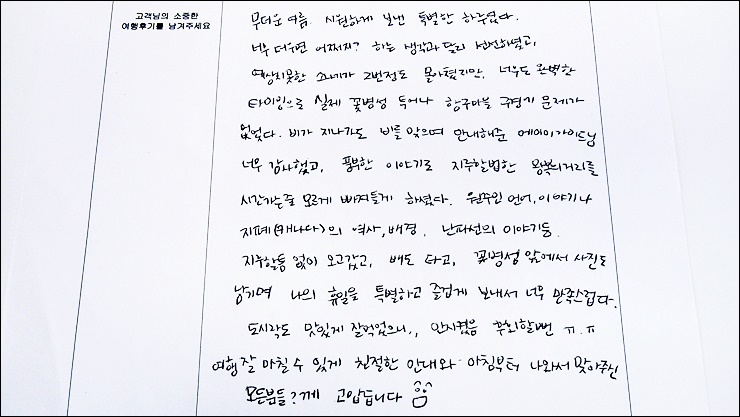 고객님의 소중한
여행후기를 남겨주세요
무더운 여름. 시원하게 보낸 특별한 하루였다.
너무 더우면 어쩌지? 하는 생각과 달리 선선하였고,
예상치못한 소나기가 2번정도 몰아쳤지만, 너무도 완벽한
타이밍으로 실제 꽃병섬 투어나 항구마을 구경에 문제가
없었다. 비가 지나가도 비를 맞으며 안내해준 에이미가이드님
너무 감사했고, 풍부한 이야기로 지루할법한 왕복의거리를
시간가는줄 모르게 빠져들게 하셨다. 원주민 언어, 이야기나
지폐(캐나다)의 역사, 배경, 난파선의 이야기등
지루할틈 없이 오고갔고, 배도 타고, 꽃병섬 앞에서 사진도
남기며 나의 휴일을 특별하고 즐겁게 보내서 너무 만족스럽다.
도시락도 맛있게 잘먹었으니,, 안시켰음 후회할뻔 ㅠ.ㅠ
여행 잘 마칠 수 있게 친절한 안내와 아침부터 나와서 맞아주신
모든분들?께 고맙습니다